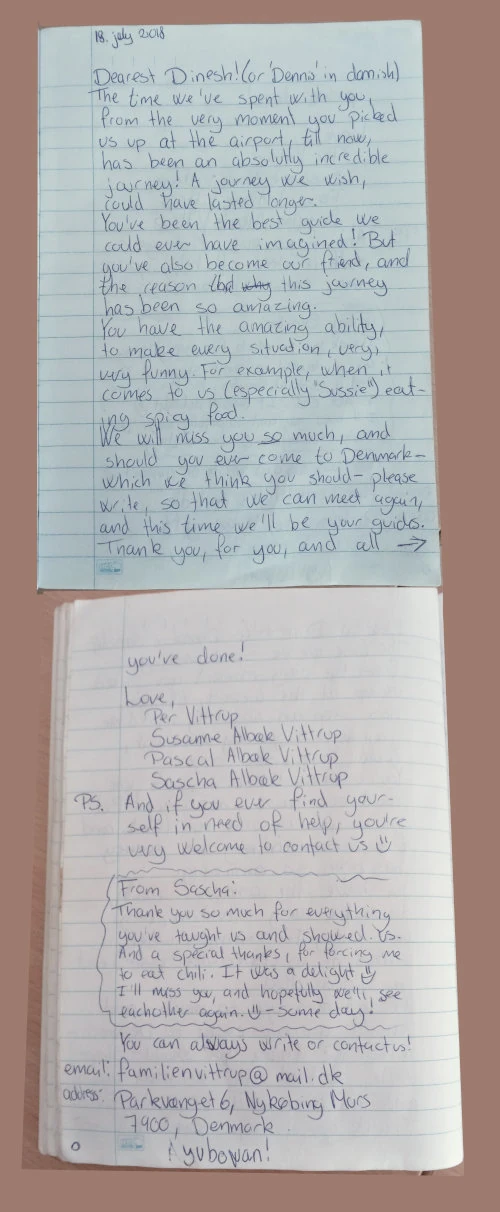 18. july 2018
Dearest Dinesh! (or 'Dennis' in danish)
The time we've spent with you,
from the very moment you picked
us up at the airport, till now,
has been an absolutly incredible
journey! A journey we wish,
could have lasted longer.
You've been the best guide we
could ever have imagined! But
you've also become our friend, and
the reason that why this journey
has been so amazing.
You have the amazing ability,
to make every situation, very,
very funny. For example, when it
comes to us (especially "Sussie") eat-
ing spicy food.
We will miss you so much, and
should you ever come to Denmark -
which we think you should - please
write, so that we can meet again,
and this time we'll be your guides.
Thank you, for you, and all →
you've done!
Love,
Per Vittrup
Susanne Albæk Vittrup
Pascal Albæk Vittrup
Sascha Albæk Vittrup
PS. And if you ever find your-
self in need of help, you're
very welcome to contact us
From Sascha:
Thank you so much for everything
you've taught us and showed us.
And a special thanks, for forcing me
to eat chili. It was a delight
I'll miss you, and hopefully we'll see
eachother again. - Some day!
You can always write or contact us!
email: familienvittrup@mail.dk
address: Parkvænget 6, Nykøbing Mors
7900, Denmark.
Ayubowan!